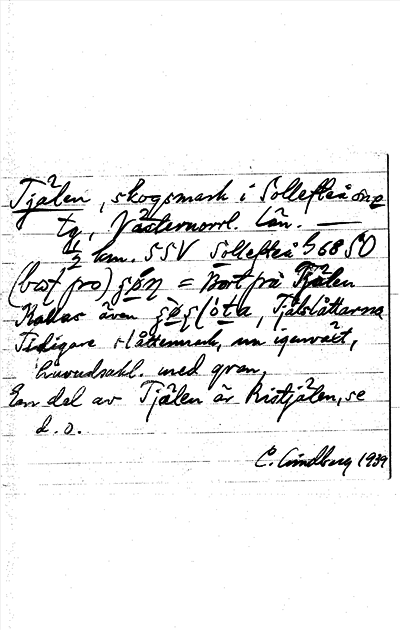 Tjälen, skogsmark i Sollefteå
tg, Västernorrl. län. —
½ km. SSV Sollefteå h68 SO
= Bort på Tjälen
Kallas även Tjälslåttarna
Tidigare slåttermark, nu igenväxt,
huvudsakl. med gran,
En del av Tjälen är Ristjälen, se
d. o.
C. Lindberg 1939